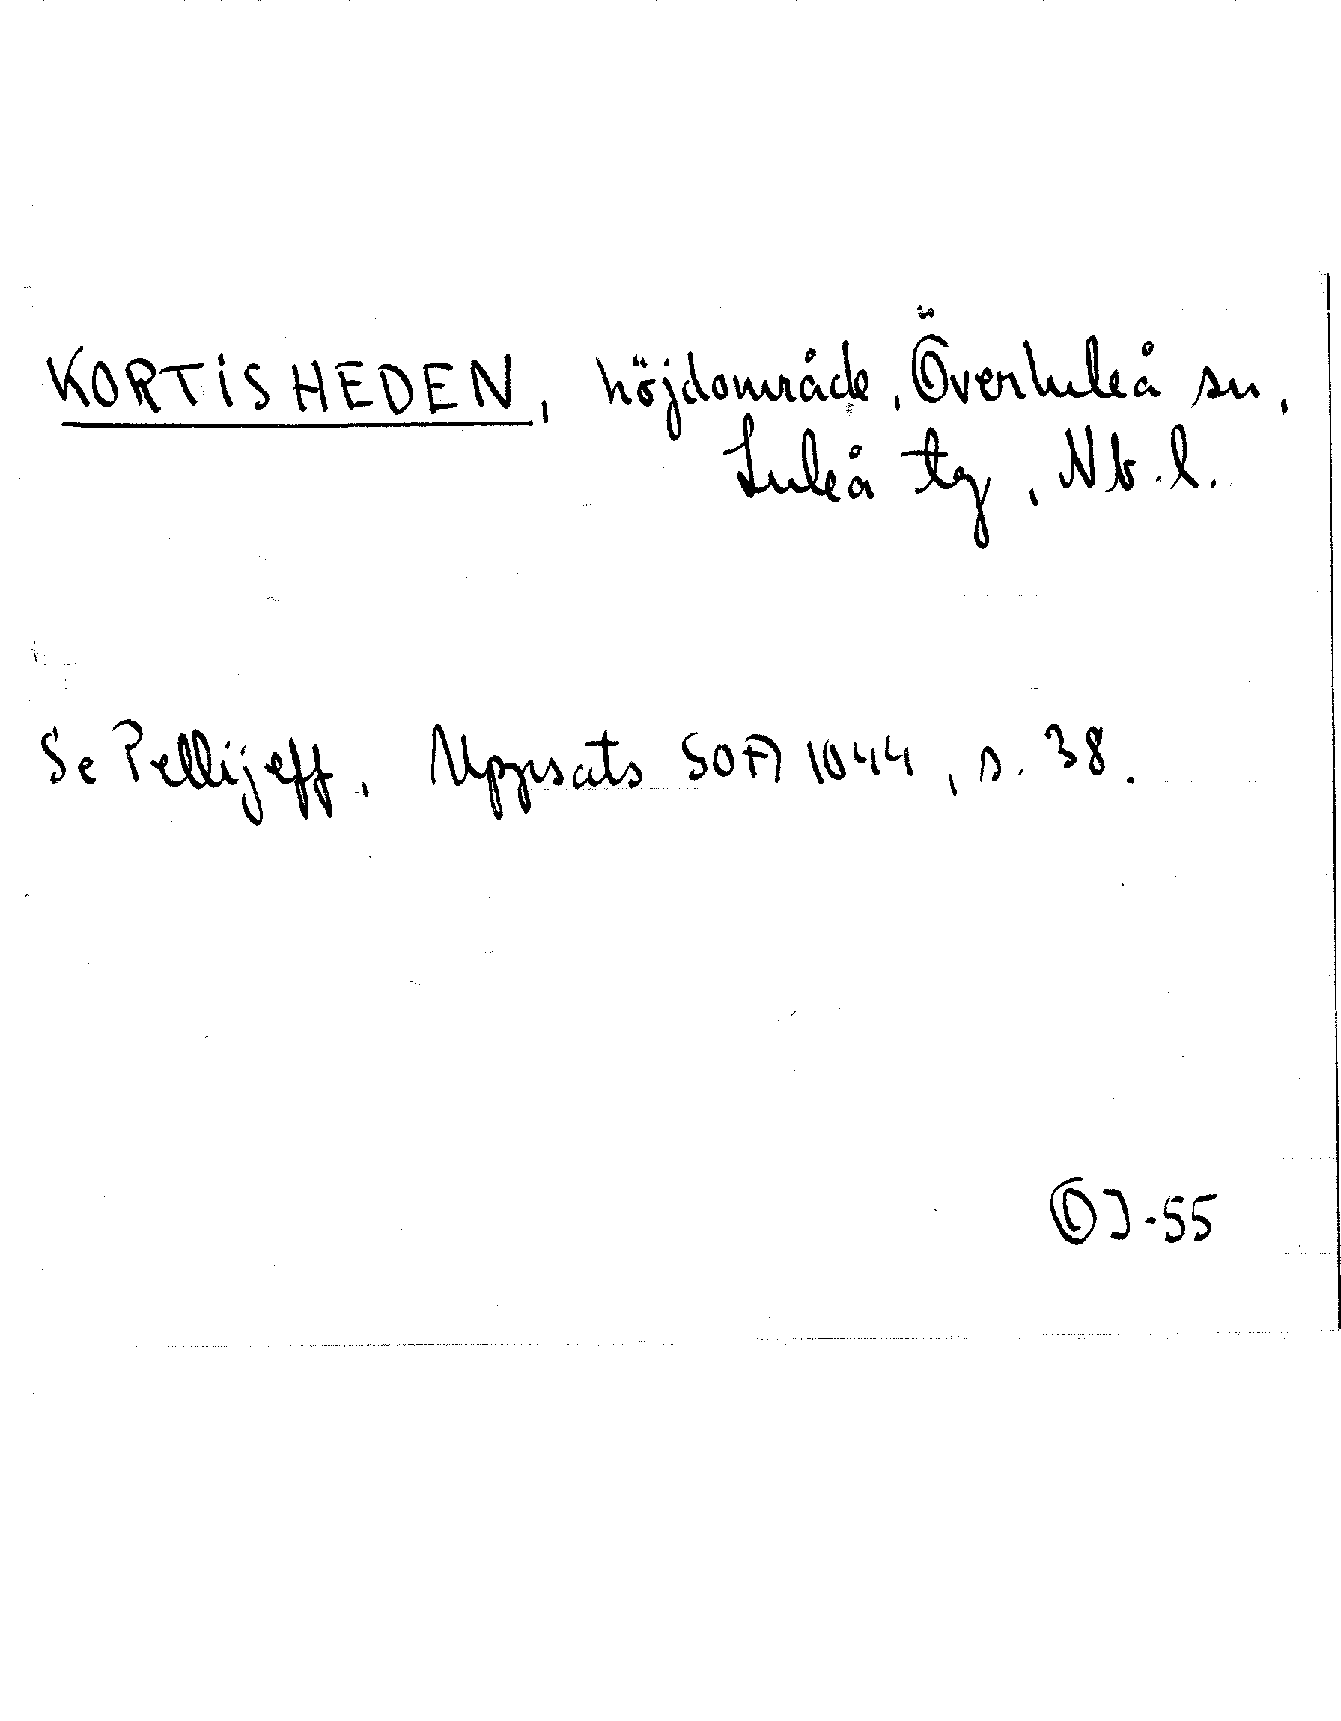 KORTISHEDEN, höjdområde, Överluleå sn,
Luleå tg, Nb.l.
Se Pellijeff, Uppsats SOFI 1044, s. 38.
OJ-55